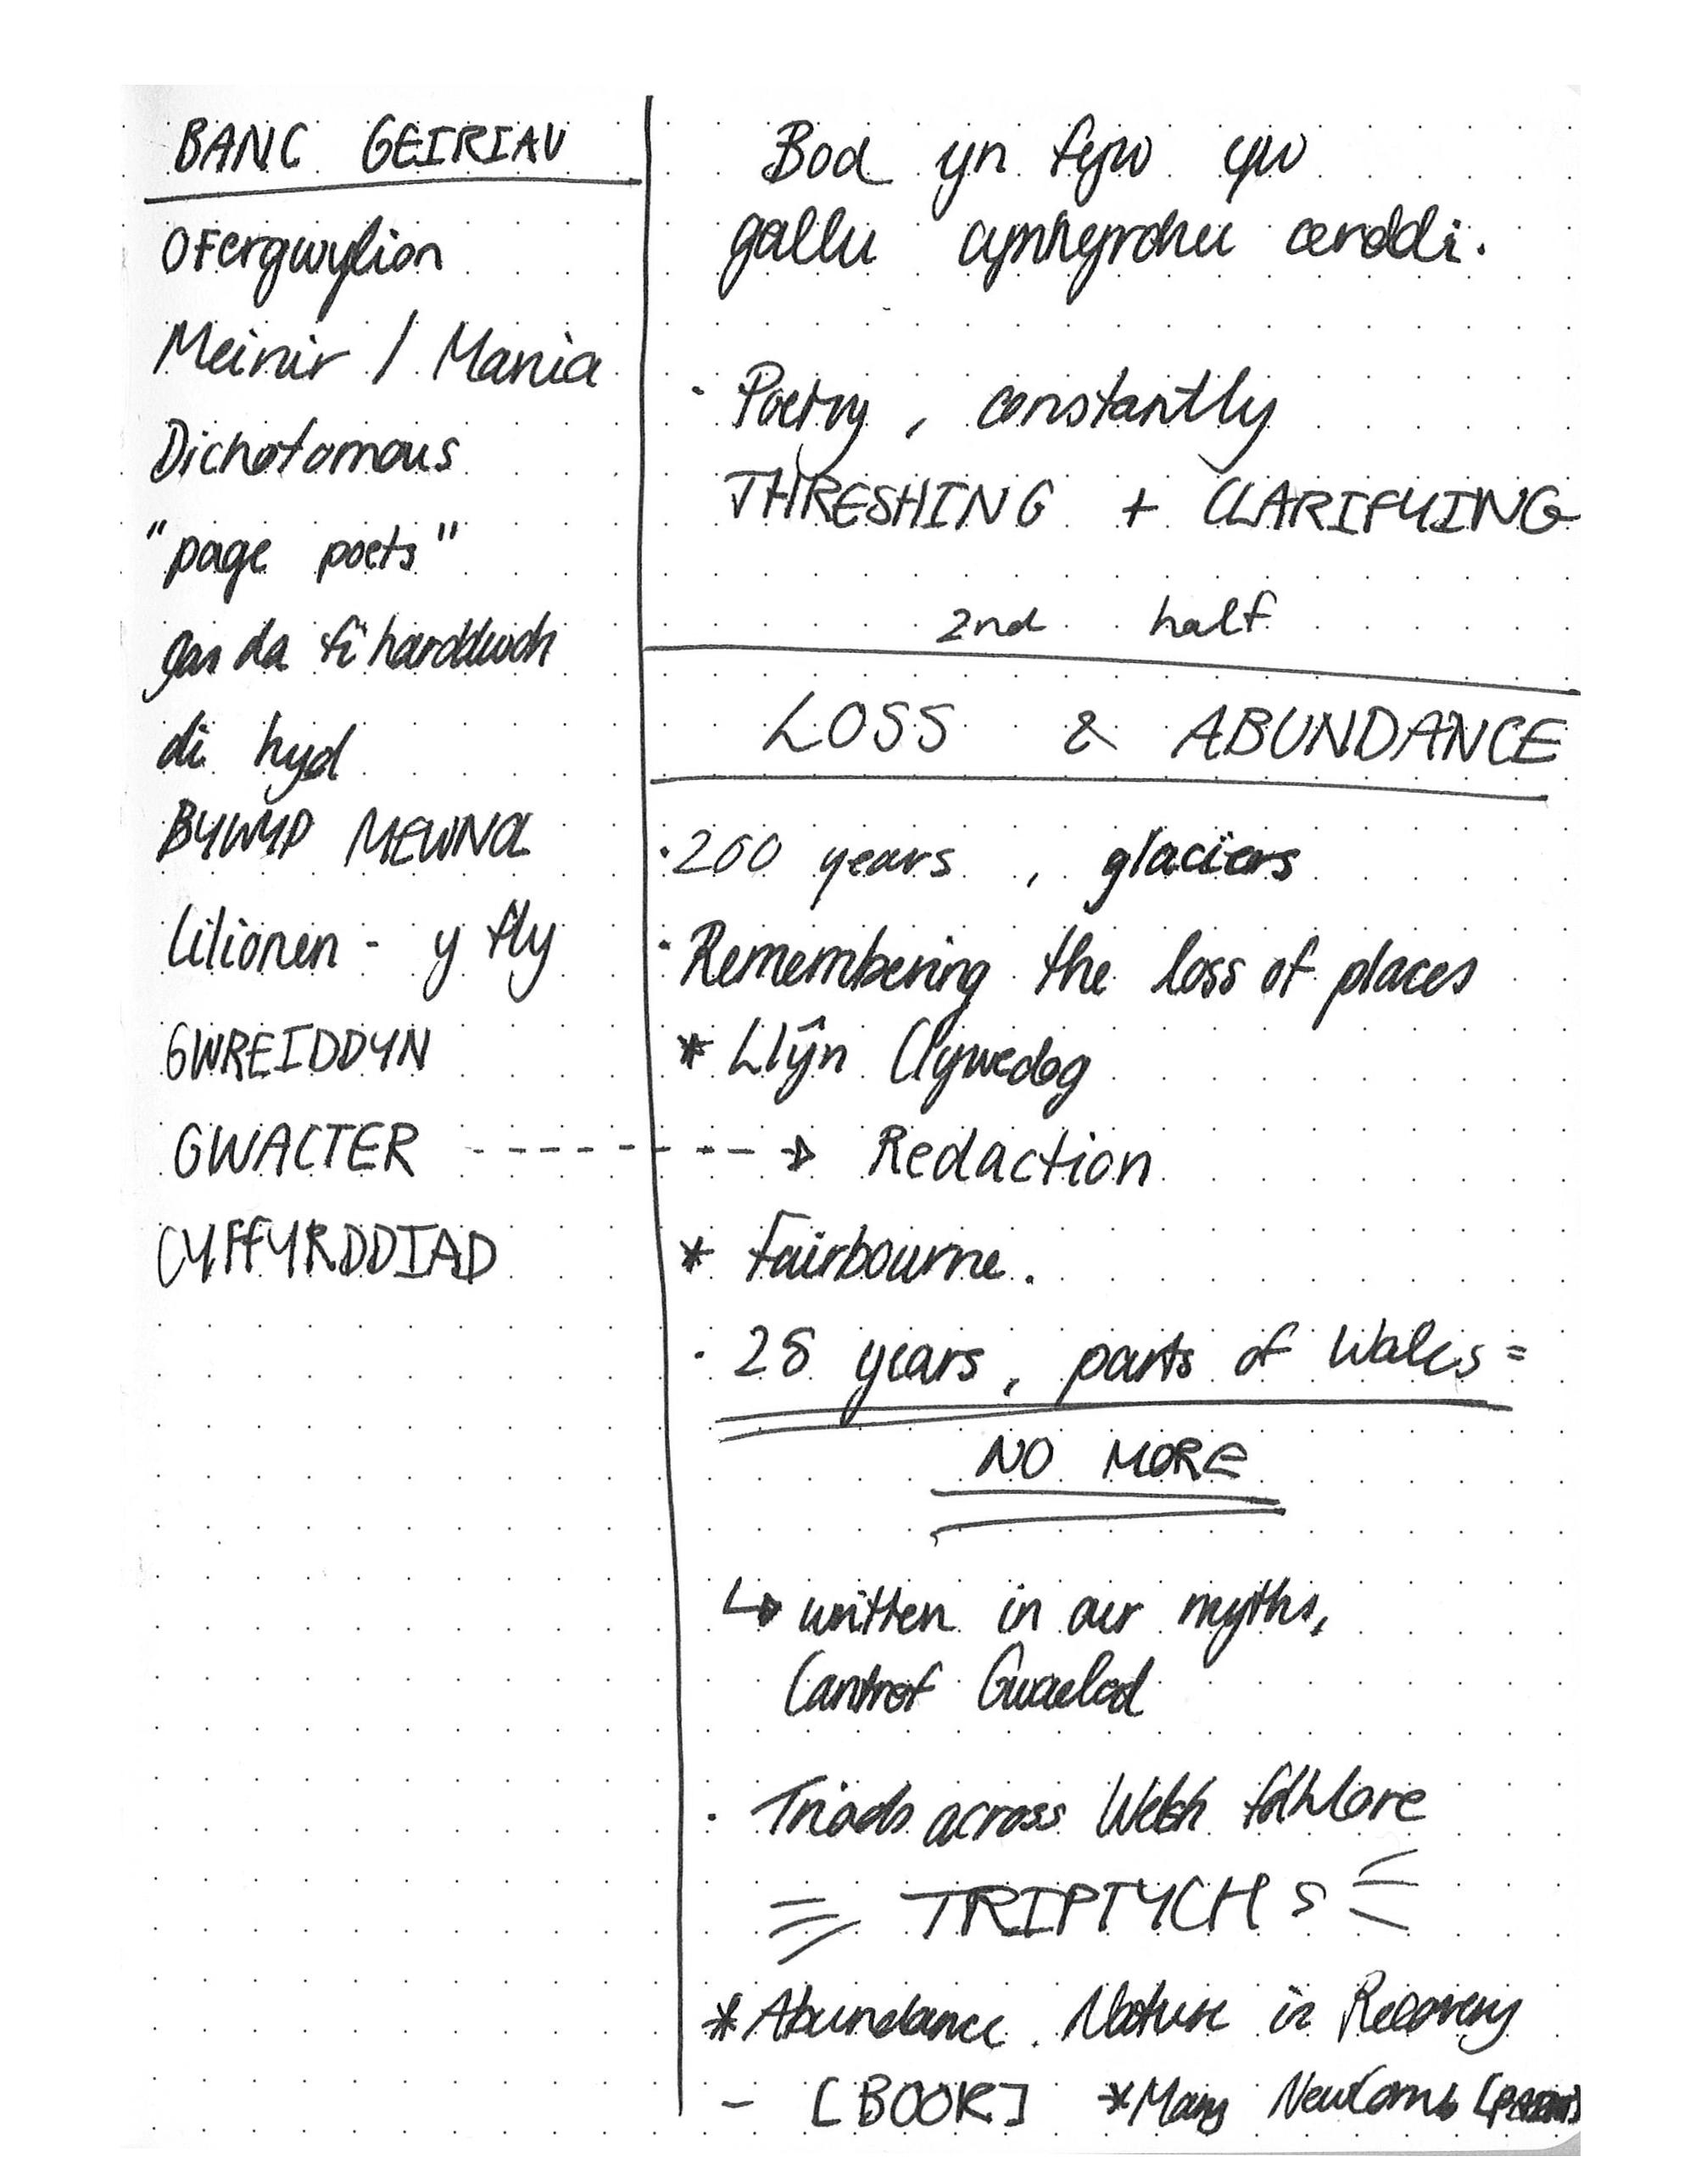 BANC GEIRIAU
Ofergwylion
Meinir / Mania
Dichotomous
"page poets"
gan da fi harddwch
di hyd
BYWYD MEWNOL
Lilionen - y fly
GWREIDDYN
GWACTER - - - - - - → Redaction
CYFFYRDDIAD
Bod yn fyw yw
gallu cynhyrchu cerddi.
· Poetry, constantly
THRESHING + CLARIFYING
2nd half
LOSS & ABUNDANCE
· 200 years, glaciers
· Remembering the loss of places
* Llŷn Clywedog
* Fairbourne.
· 28 years, parts of Wales =
NO MORE
↳ written in our myths,
Cantref Gwaelod
· Triads across Welsh folklore
TRIPTYCHS
* Abundance. Nature in Recovery
- [BOOK] * Mary Newcomb